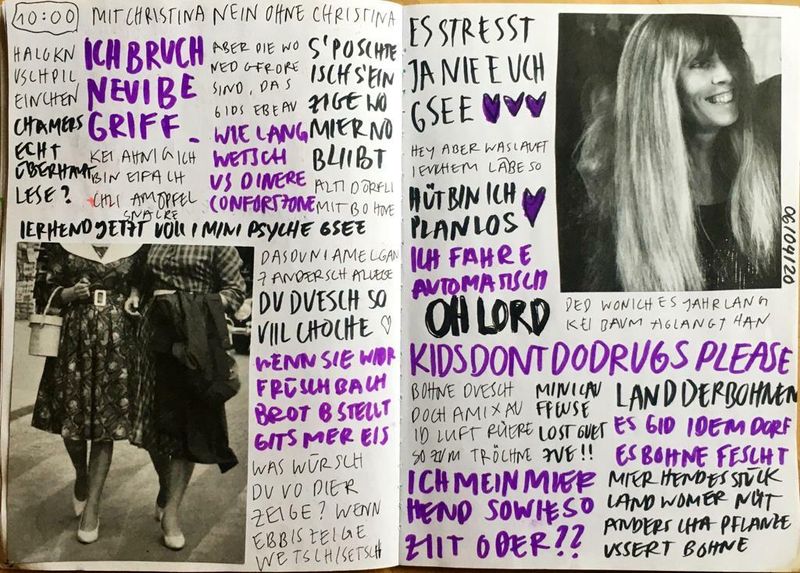 10:00
MIT CHRISTINA NEIN OHNE CHRISTINA
EINCHEN
CHAMERS
ECHT
ÜBERHAUPT
LESE?
ICH BRUCH
NEUI BE
GRIFF.
KEI AHNIG ICH
BIN EIFACH
CHLI AM ÖPFEL
SNÄCKE
ABER DIE WO
SIND, DAS
WIE LANG
WETSCH
US DINERE
COMFORTZONE
S'POSCHTE
ISCH S'EIN
ZIGE WO
MIER NO
BLIIBT
ALTI DÖRFLI
MIT BOHNE
IER HEND JETZT VOLL I MINI PSYCHE GSEE
DU DUESCH SO
VIIL CHOCHE ♡
WENN SIE WIDR
FRÜSCHBACH
BROT BSTELLT
GITS MER EIS
WAS WÜRSCH
DU VO DIER
ZEIGE? WENN
EBBIS ZEIGE
WETSCH/SETSCH
ES STRESST
JA NIE EUCH
GSEE ♥♥♥
HEY ABER WAS LAUFT
I EUCHEM LÄBE SO
HÜT BIN ICH
PLANLOS ♥
ICH FAHRE
AUTOMATISCH
OH LORD
06/04/20
DED WON ICH ES JAHR LANG
KEI BAUM AGLANGT HAN
KIDS DONT DO DRUGS PLEASE
BOHNE DUESCH
DOCH AMIX AU
ID LUFT RÜERE
SO ZUM TRÖCHNE
MINI CAU
FFEUSE
LOST GUET
ZUE!!
LAND DER BOHNEN
ES GID I DEM DORF
ES BOHNE FESCHT
ICH MEIN MIER
HEND SOWIESO
ZIIT ODER??
MIER HEN DES STÜCK
LAND WO MER NÜT
ANDERS CHA PFLANZE
USSERT BOHNE